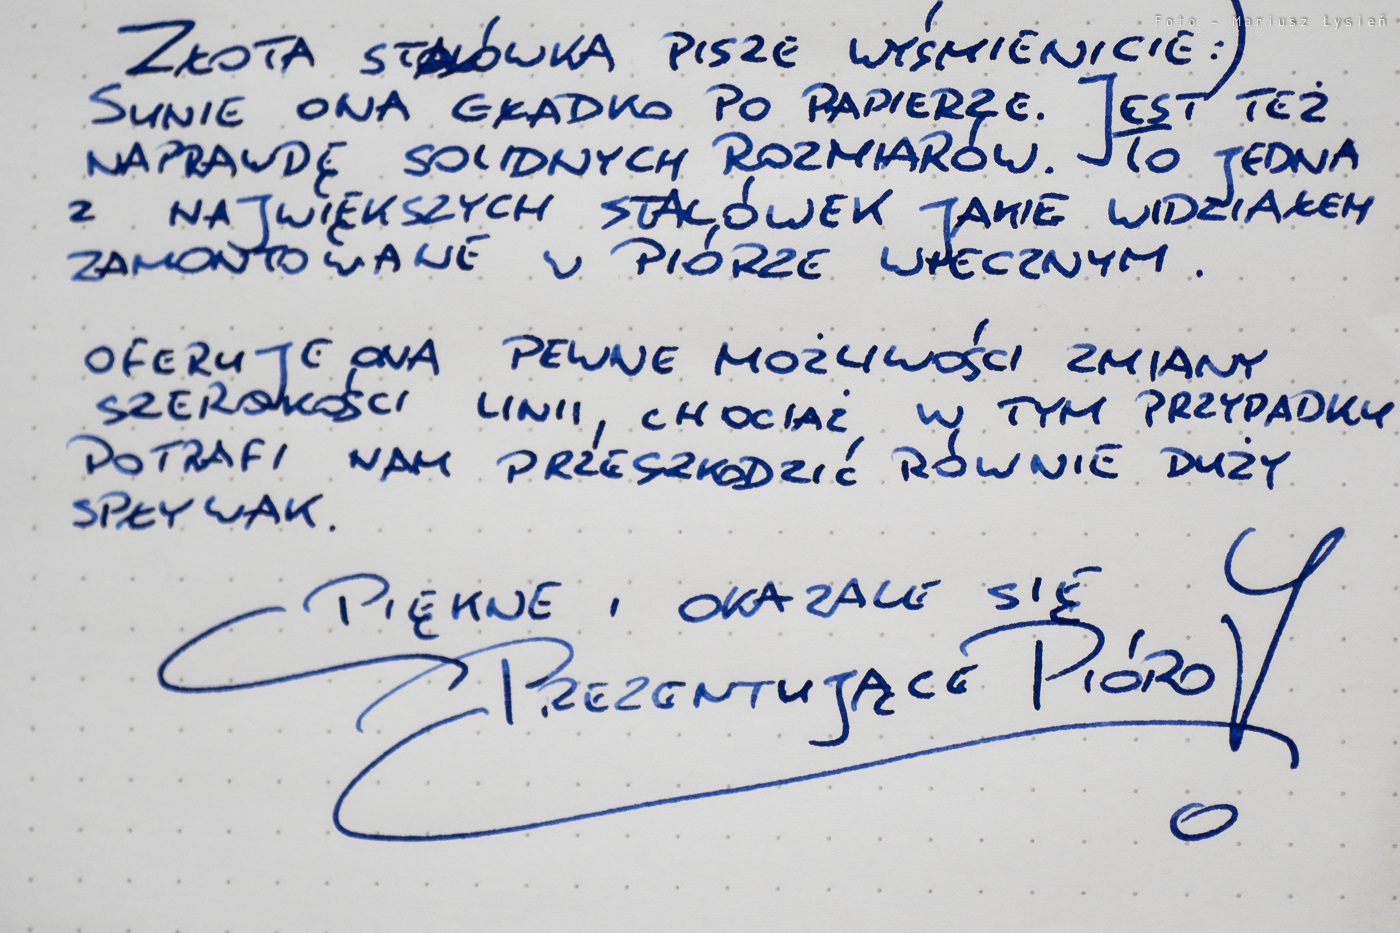 Foto - Mariusz Łysień
ZŁOTA STALÓWKA PISZE WYŚMIENICIE :)
SUNIE ONA GŁADKO PO PAPIERZE. JEST TEŻ
NAPRAWDĘ SOLIDNYCH ROZMIARÓW. TO JEDNA
Z NAJWIĘKSZYCH STALÓWEK JAKIE WIDZIAŁEM
ZAMONTOWANE W PIÓRZE WIECZNYM.
OFERUJE ONA PEWNE MOŻLIWOŚCI ZMIANY
SZEROKOŚCI LINII, CHOCIAŻ W TYM PRZYPADKU
POTRAFI NAM PRZESZKODZIĆ RÓWNIE DUŻY
SPŁYWAK.
PIĘKNE I OKAZALE SIĘ
PREZENTUJĄCE PIÓRO!